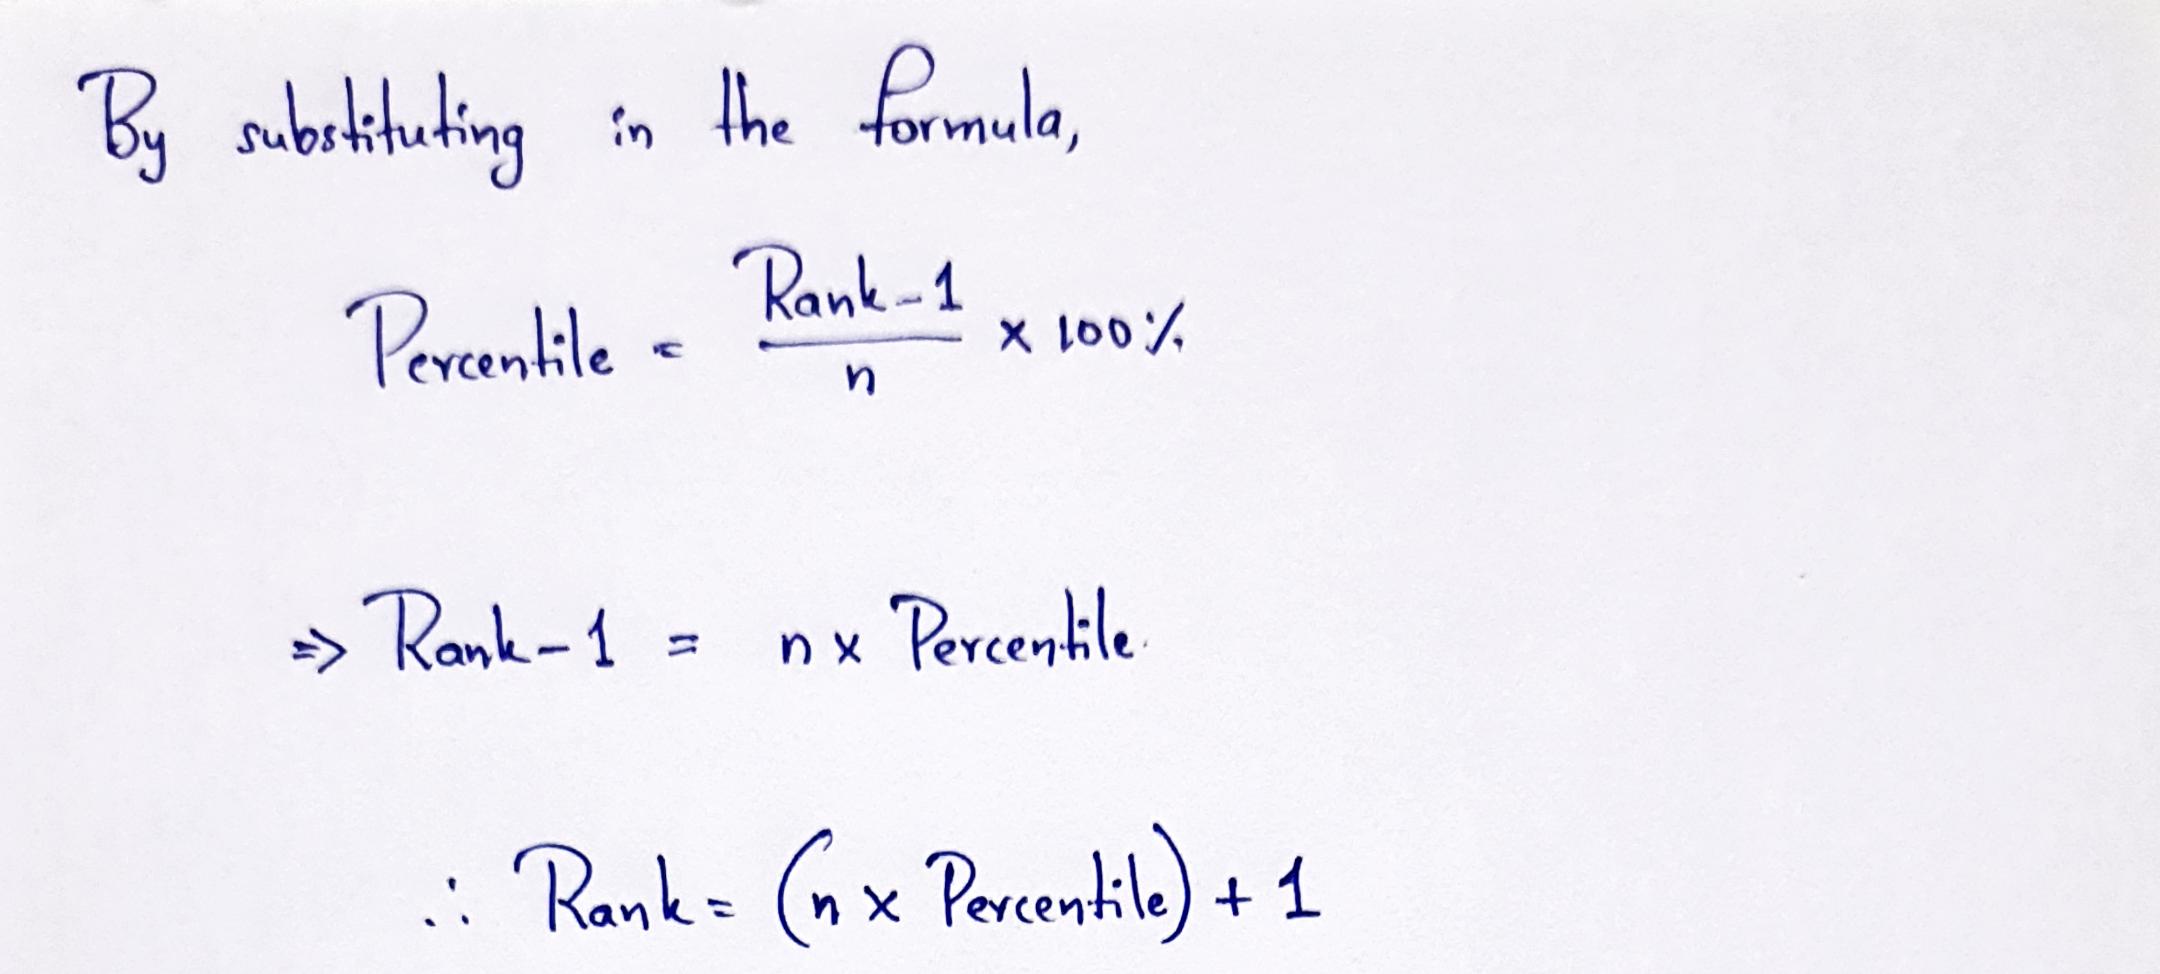 By substituting in the formula,
Percentile = Rank-1 / n × 100%
⇒ Rank-1 = n × Percentile.
∴ Rank = (n × Percentile) + 1